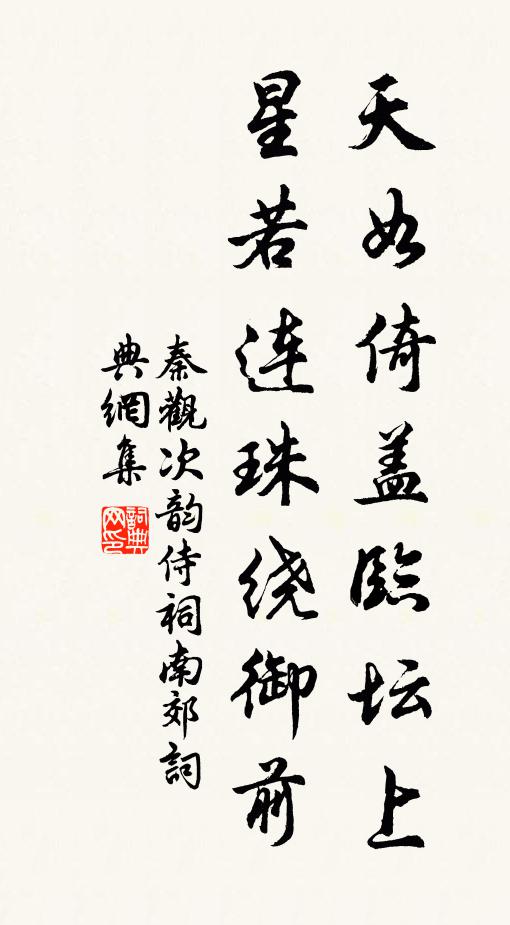 天如倚盖臨坛上
星若连珠绕御前
秦觀次韵侍祠南郊詞
典網集
詞典网印